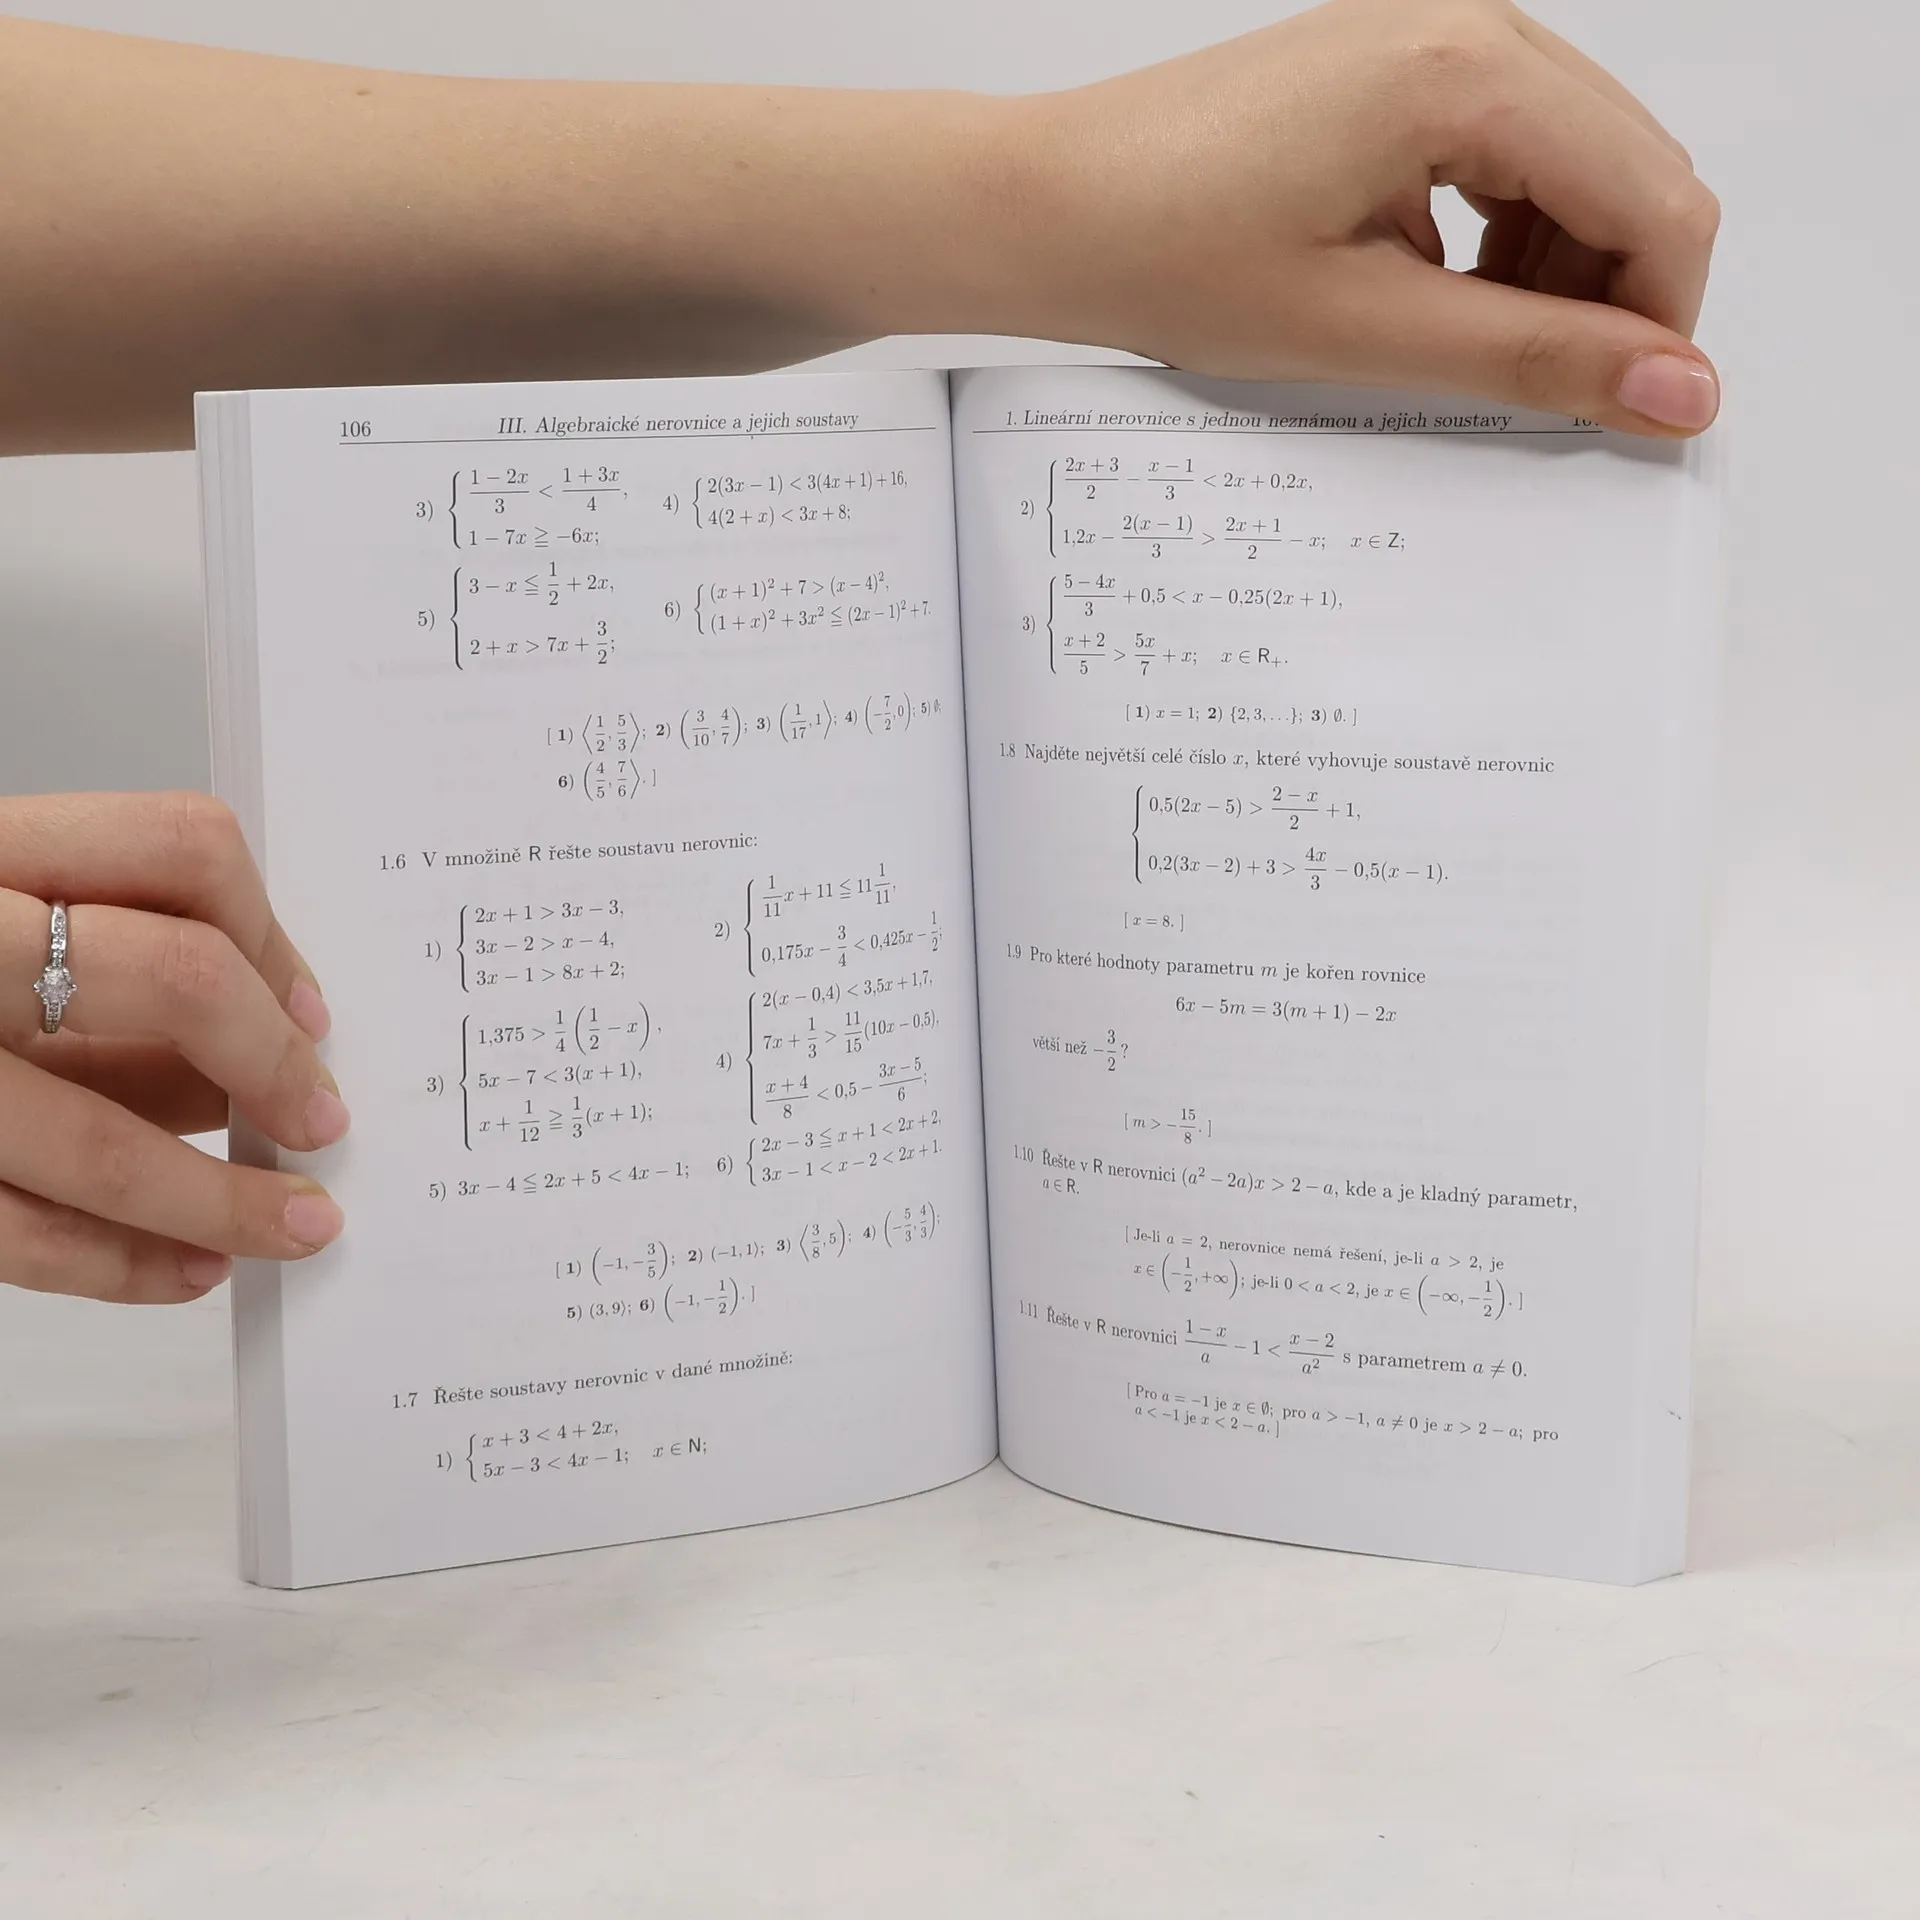 106 III. Algebraické nerovnice a jejich soustavy
3) { (1 − 2x)/3 < (1 + 3x)/4,
1 − 7x ≧ −6x;
4) { 2(3x − 1) < 3(4x + 1) + 16,
4(2 + x) < 3x + 8;
5) { 3 − x ≦ 1/2 + 2x,
2 + x > 7x + 3/2;
6) { (x + 1)² + 7 > (x − 4)²,
(1 + x)² + 3x² ≦ (2x − 1)² + 7.
[ 1) ⟨1/2, 5/3⟩; 2) (3/10, 4/7); 3) (1/17, 1⟩; 4) (−7/2, 0); 5) ∅;
6) (4/5, 7/6⟩. ]
1.6 V množině R řešte soustavu nerovnic:
1) { 2x + 1 > 3x − 3,
3x − 2 > x − 4,
3x − 1 > 8x + 2;
2) { 1/11 x + 11 ≦ 11 1/11,
0,175x − 3/4 < 0,425x − 1/2;
3) { 1,375 > 1/4 (1/2 − x),
5x − 7 < 3(x + 1),
x + 1/12 ≧ 1/3 (x + 1);
4) { 2(x − 0,4) < 3,5x + 1,7,
7x + 1/3 > 11/15 (10x − 0,5),
(x + 4)/8 < 0,5 − (3x − 5)/6;
5) 3x − 4 ≦ 2x + 5 < 4x − 1;
6) { 2x − 3 ≦ x + 1 < 2x + 2,
3x − 1 < x − 2 < 2x + 1.
[ 1) (−1, −3/5); 2) (−1, 1⟩; 3) ⟨3/8, 5); 4) (−5/3, 4/3);
5) (3, 9⟩; 6) (−1, −1/2). ]
1.7 Řešte soustavy nerovnic v dané množině:
1) { x + 3 < 4 + 2x,
5x − 3 < 4x − 1; x ∈ N;
1. Lineární nerovnice s jednou neznámou a jejich soustavy
2) { (2x + 3)/2 − (x − 1)/3 < 2x + 0,2x,
1,2x − 2(x − 1)/3 > (2x + 1)/2 − x; x ∈ Z;
3) { (5 − 4x)/3 + 0,5 < x − 0,25(2x + 1),
(x + 2)/5 > 5x/7 + x; x ∈ R₊.
[ 1) x = 1; 2) {2, 3, …}; 3) ∅. ]
1.8 Najděte největší celé číslo x, které vyhovuje soustavě nerovnic
{ 0,5(2x − 5) > (2 − x)/2 + 1,
0,2(3x − 2) + 3 > 4x/3 − 0,5(x − 1).
[ x = 8. ]
1.9 Pro které hodnoty parametru m je kořen rovnice
6x − 5m = 3(m + 1) − 2x
větší než −3/2?
[ m > −15/8. ]
1.10 Řešte v R nerovnici (a² − 2a)x > 2 − a, kde a je kladný parametr,
a ∈ R.
[ Je-li a = 2, nerovnice nemá řešení, je-li a > 2, je
x ∈ (−1/2, +∞); je-li 0 < a < 2, je x ∈ (−∞, −1/2). ]
1.11 Řešte v R nerovnici (1 − x)/a − 1 < (x − 2)/a² s parametrem a ≠ 0.
[ Pro a = −1 je x ∈ ∅; pro a > −1, a ≠ 0 je x > 2 − a; pro
a < −1 je x < 2 − a. ]